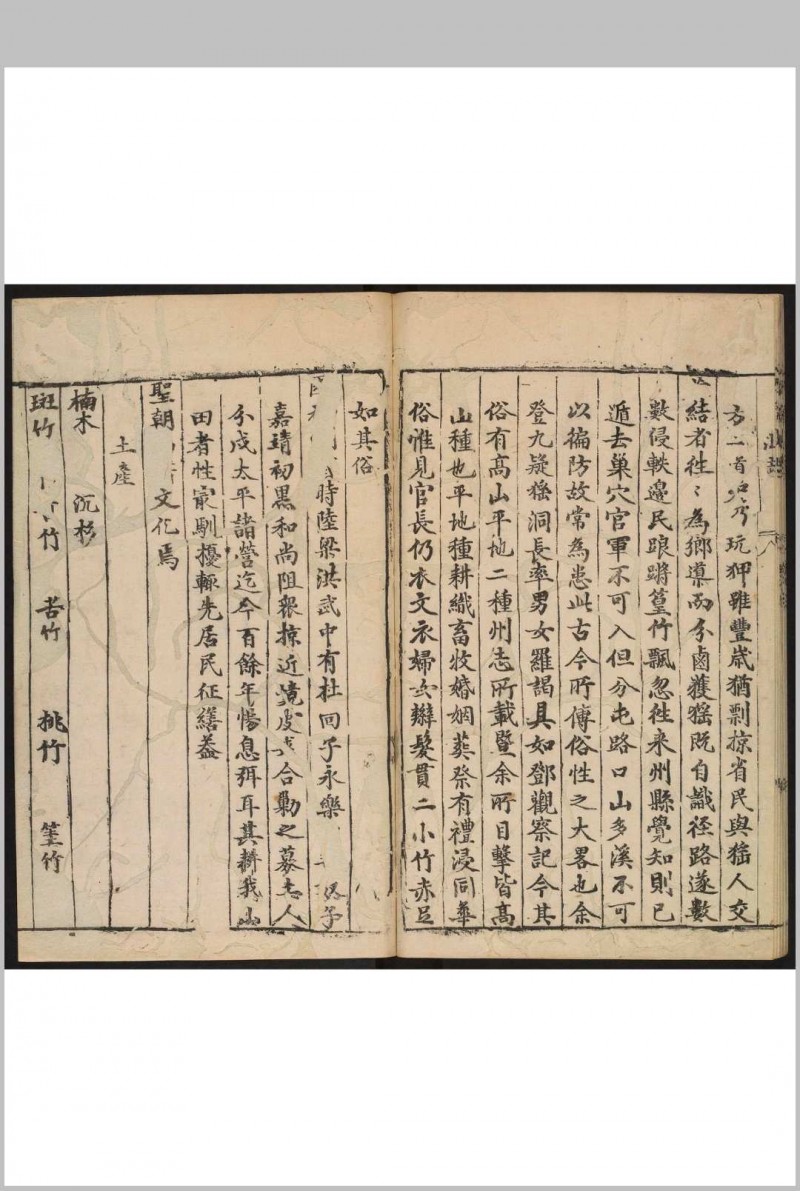 玩狎雖豐歲猶剽掠省民與猺人交
結者徃〻為鄉導而分鹵獲猺既自識徑路遂數
數侵軼邊民踉蹡篁竹飄忽徃来州縣覺知則已
遁去巢穴官軍不可入但分屯路口山多溪不可
以徧防故常為患此古今所傳俗性之大畧也余
登九疑猺洞長率男女羅謁具如鄧觀察記今其
俗有髙山平地二種州志所載暨余所目擊皆髙
山種也平地種耕織畜牧婚姻葬祭有禮浸同華
俗惟見官長仍衣文衣婦女辮髮貫二小竹赤足
如其俗
時陸梁洪武中有杜回子永樂
嘉靖初黒和尚阻衆掠近境皮合勦之募人
分戍太平諸營迄今百餘年惕息弭耳其耕我山
田者性最馴擾輒先居民征繕葢
聖朝文化焉
土產
楠木 沉杉
斑竹 竹 苦竹 桃竹 筀竹